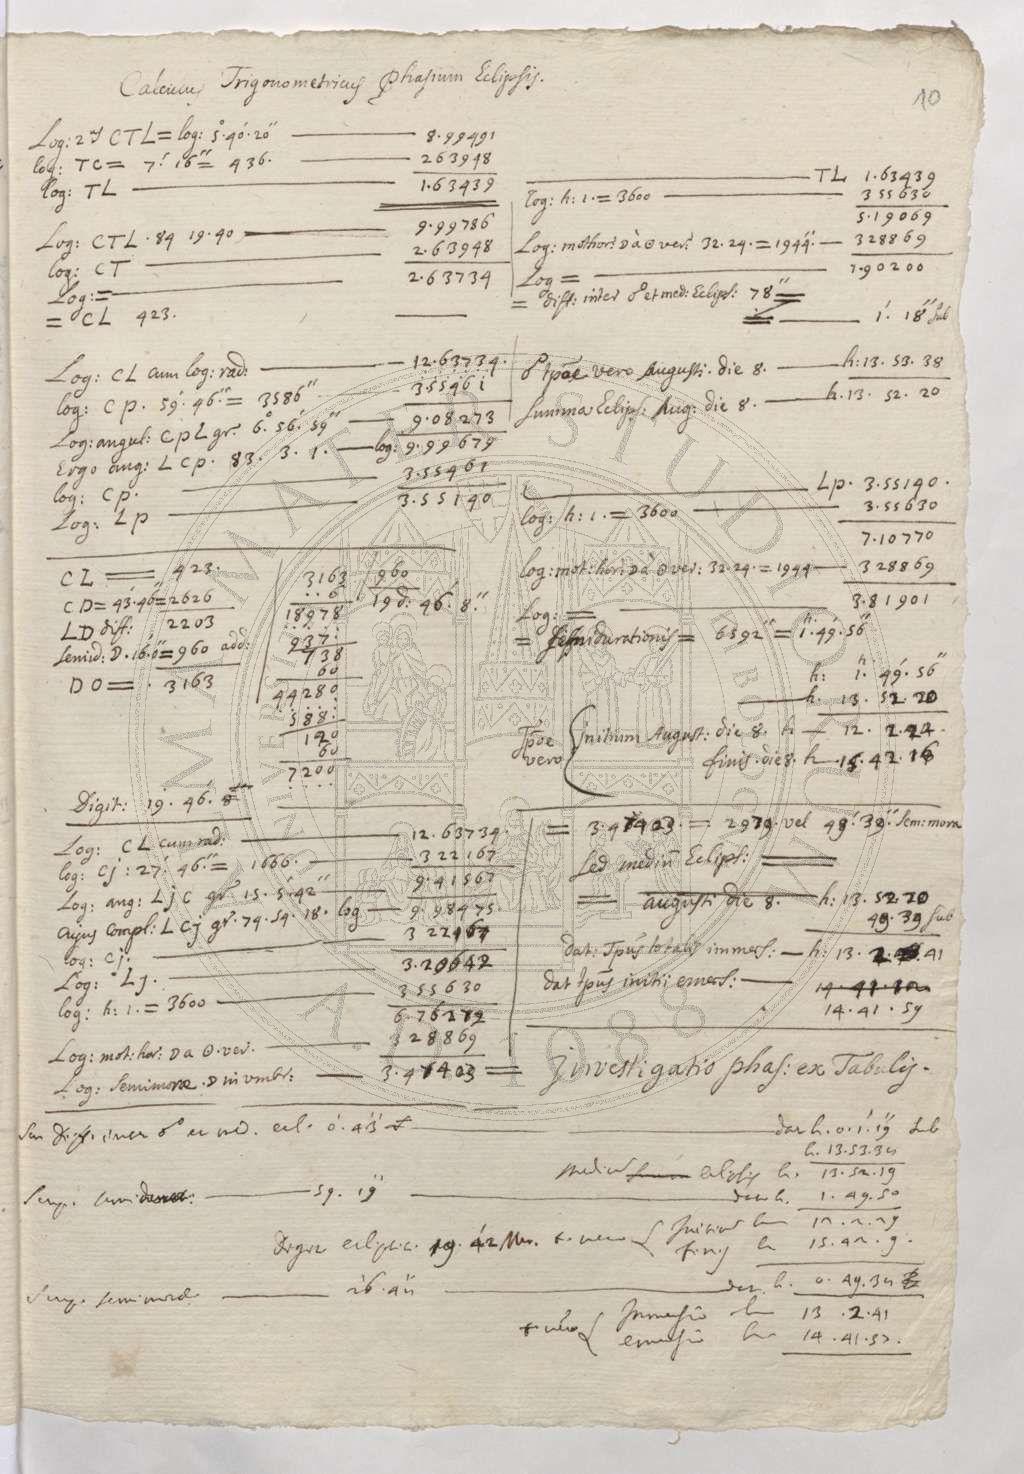 Calculus Trigonometricus Phasium Eclipsis.
10
Log: 2di CTL = log: 5°.40'.20" 8.99491
log: TC = 7'.16" = 436. 263948
log: TL 1.63439
Log: CTL. 84 19.40 9.99786
log: CT 2.63948
Log: = 2.63734
= CL 423.
Log: CL cum log: rad: 12.63734.
log: Cp. 59'.46" = 3586" 3.55461
Log: angul: CpL gr. 6°.56'.59" 9.08273
Ergo ang: LCp. 83. 3. 1. log: 9.99679
log: Cp. 3.55461
Log: Lp 3.55140
CL 423.
CD = 43'.46" = 2626
LD diff: 2203
Semid: D. 16'.0" = 960 add:
DO = . 3163
3163 960
6 19d: 46'. 8."
18978
937
738
60
44280
588
120
60
7200
Digit: 19. 46'. 8"
Log: CL cum rad: 12.63734.
log: Cj: 27'. 46" = 1666. 322167
Log: ang: LjC gr. 15. 5'.42" 9.41567
Cujus Compl: LCj gr. 74. 54. 18. log 9.98475.
log: Cj. 322167
Log: Lj. 3.20642
log: h: 1. = 3600 355630
6.76272
Log: mot: hor: D a O. ver. 328869
Log: semimorae D in umbr: 3.47403
TL 1.63439
log: h: 1. = 3600 355630
5.19069
Log: mot hor: D à O ver: 32.24. = 1944". 328869
Log = 1.90200
= diff: inter et med: Eclips: 78"
1'. 18" sub
tpōe vero Augusti. die 8. h: 13. 53. 38
Summa Eclips: Aug: die 8. h. 13. 52. 20
Lp. 3.55140.
log: h: 1. = 3600 3.55630
7.10770
log: mot: hor: D à O ver: 32.24. = 1944 328869
Log: = 3.81901
= Semidurationis = 6592" = 1h.49'.56"
h: 1. 49'. 56"
h. 13. 52. 20
Tpōe vero
initium August: die 8. h 12. 2.24.
finis. die 8. h 15. 42. 16
= 3.47403. = 2979. vel 49'. 39". Sem: mora
Sed mediū Eclips:
= augusti die 8. h: 13. 52 20
49. 39 sub
dat: Tpūs totalis immers: h: 13. 2. 41
dat tpūs initii emers:
14. 41. 59
Investigatio phas: ex Tabulis.
ecl. 0'.43"
dat h. 0.1'.19" sub
h. 13.53.38
medium eclipsis h. 13.52.19
59. 19" dat h. 1. 49.50
Digit eclipt. 19. 42 initium h 12.2.29
finis h 15.42.9.
26.42 dat h. 0. 49.38
t. vero Immersio h 13.2.41
emersio h 14.41.57.